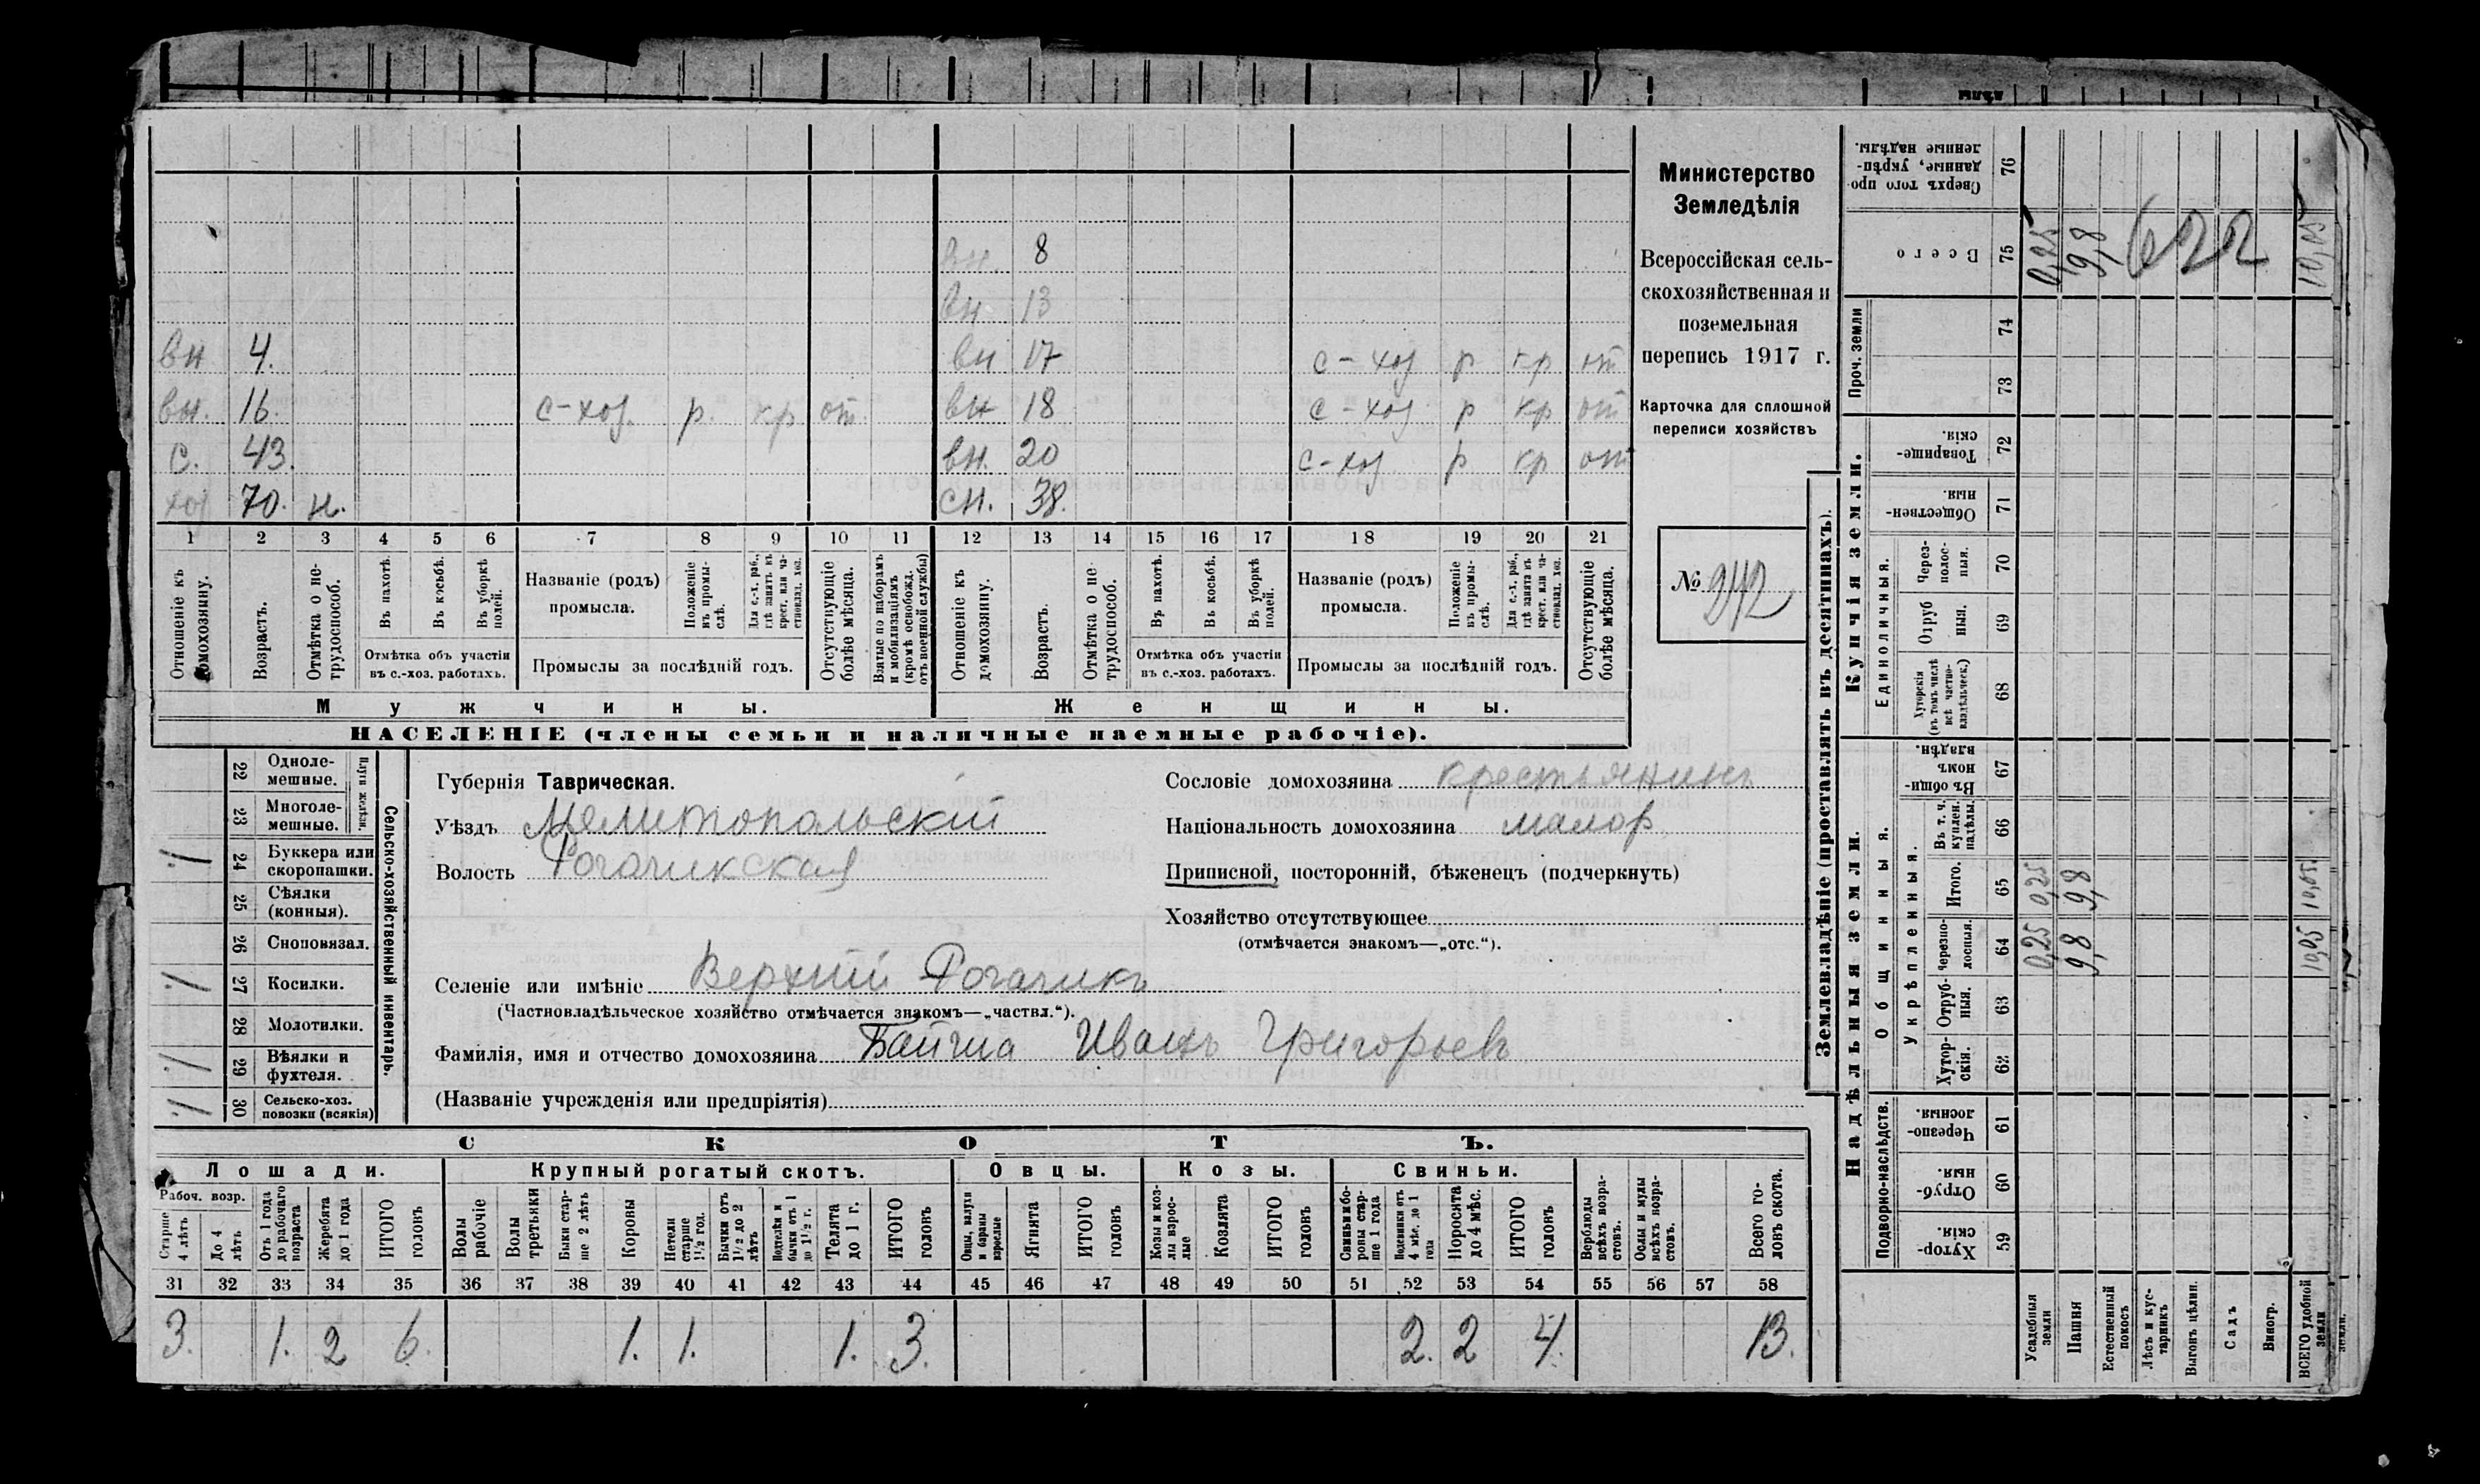 вн. 8
вн 13
вн 4. вн 17 с-хоз р кр от
вн. 16. с-хоз. р. кр от. вн 18 с-хоз р кр от
с. 43. вн. 20 с-хоз р кр от
хоз 70. н. сн. 38.
1 2 3 4 5 6 7 8 9 10 11 12 13 14 15 16 17 18 19 20 21
Отношеніе къ домохозяину.
Возрастъ.
Отмѣтка о не-
трудоспособ.
Въ пахотѣ.
Въ косьбѣ.
Въ уборкѣ
полей.
Отмѣтка объ участіи
въ с.-хоз. работахъ.
Названіе (родъ)
промысла.
Положеніе
въ промы-
слѣ.
Для с.-х. раб.,
гдѣ занятъ въ
крест. или ча-
стновлад. хоз.
Промыслы за послѣдній годъ.
Отсутствующіе
болѣе мѣсяца.
Взятые по наборамъ
и мобилизаціямъ
(кромѣ освобожд.
отъ военной службы)
Отношеніе къ
домохозяину.
Возрастъ.
Отмѣтка о не-
трудоспособ.
Въ пахотѣ.
Въ косьбѣ.
Въ уборкѣ
полей.
Отмѣтка объ участіи
въ с.-хоз. работахъ.
Названіе (родъ)
промысла.
Положеніе
въ промы-
слѣ.
Для с.-х. раб.,
гдѣ занята въ
крест. или ча-
стновлад. хоз.
Промыслы за послѣдній годъ.
Отсутствующіе
болѣе мѣсяца.
Мужчины. Женщины.
НАСЕЛЕНІЕ (члены семьи и наличные наемные рабочіе).
Министерство
Земледѣлія
Всероссійская сель-
скохозяйственная и
поземельная
перепись 1917 г.
Карточка для сплошной
переписи хозяйствъ
№ 242
22 Одноле-
мешные.
23 Многоле-
мешные.
Плуги желѣзн.
1 24 Буккера или
скоропашки.
25 Сѣялки
(конныя).
26 Сноповязал.
1 27 Косилки.
28 Молотилки.
1 29 Вѣялки и
фухтеля.
1 30 Сельско-хоз.
повозки (всякія)
Сельско-хозяйственный инвентарь.
Губернія Таврическая.
Уѣздъ Мелитопольскій
Волость Рогачикская
Сословіе домохозяина крестьянинъ
Національность домохозяина малор
Приписной, посторонній, бѣженецъ (подчеркнуть)
Хозяйство отсутствующее
(отмѣчается знакомъ—„отс.“).
Селеніе или имѣніе Верхній Рогачикъ
(Частновладѣльческое хозяйство отмѣчается знакомъ—„частвл.“).
Фамилія, имя и отчество домохозяина Иванъ Григорьевъ
(Названіе учрежденія или предпріятія)
СКОТЪ.
Лошади. Крупный рогатый скотъ. Овцы. Козы. Свиньи.
Рабоч. возр.
Старше
4 лѣтъ
До 4
лѣтъ
Отъ 1 года
до рабочаго
возраста
Жеребята
до 1 года
ИТОГО
головъ
Волы
рабочіе
Волы
третьяки
Быки стар-
ше 2 лѣтъ
Коровы
Нетели
старше
1½ год.
Бычки отъ
1½ до 2
лѣтъ
Подтелки и
бычки отъ 1
до 1½ г.
Телята
до 1 г.
ИТОГО
головъ
Овцы, валухи
и бараны
взрослые
Ягнята
ИТОГО
головъ
Козы и коз-
лы взрос-
лые
Козлята
ИТОГО
головъ
Свиньи и бо-
ровы стар-
ше 1 года
Подсвинки отъ
4 мѣс. до 1
года
Поросята
до 4 мѣс.
ИТОГО
головъ
Верблюды
всѣхъ возра-
стовъ.
Ослы и мулы
всѣхъ возра-
стовъ.
Всего го-
ловъ скота.
31 32 33 34 35 36 37 38 39 40 41 42 43 44 45 46 47 48 49 50 51 52 53 54 55 56 57 58
3. 1. 2 6. 1. 1. 1. 3. 2. 2 4. 13.
Землевладѣніе (проставлять въ десятинахъ).
Купчія земли.
Надѣльныя земли.
Сверхъ того про-
данные, укрѣп-
ленные надѣлы. 76
Всего 75 0,25 9,8 622 10,05
Проч. земли 74
73
Товарище-
скія. 72
Обществен-
ныя. 71
Единоличныя.
Через-
полос-
ныя. 70
Отруб
ныя. 69
Хуторскія
(въ томъ числѣ
всѣ частно-
владѣльческ.) 68
Общинныя.
Въ общи-
номъ
владѣн. 67
Укрѣпленныя.
Въ т. ч.
куплен.
надѣлы. 66
Итого. 65 0,25 9,8 10,05
Черезпо-
лосныя. 64 0,25 9,8 10,05
Отруб-
ныя. 63
Хутор-
скія. 62
Подворно-наслѣдств.
Черезпо-
лосныя 61
Отруб-
ныя. 60
Хутор-
скія. 59
Усадебныя
земли
Пашня
Естественный
покосъ
Лѣсъ и кус-
тарникъ
Выгонъ цѣлин.
Садъ
Виногр.
ВСЕГО удобной
земли
земли.